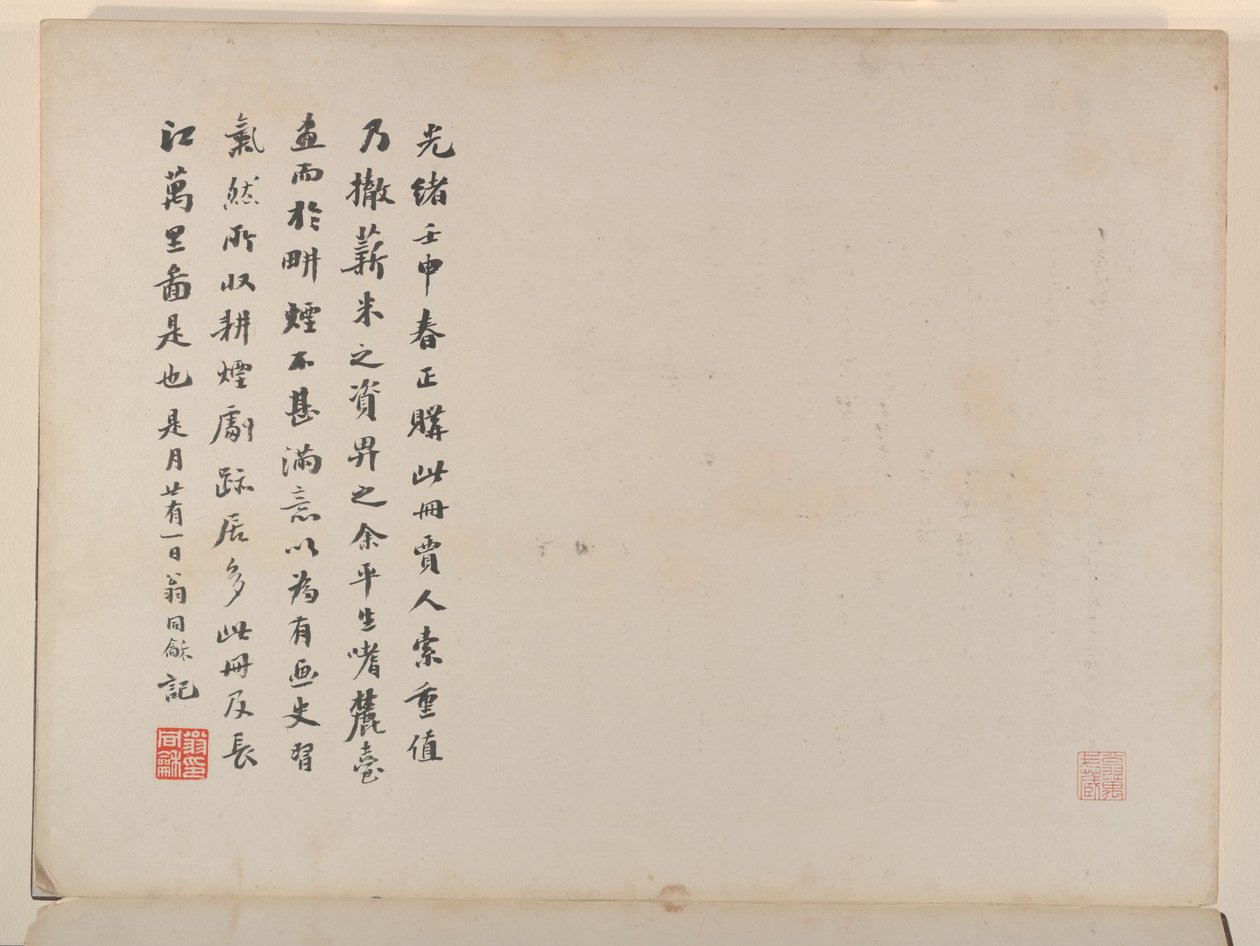 光緒壬申春正購此冊賈人索重值
乃撤薪米之資畀之余平生嗜麓臺
畫而於畊煙不甚滿意以為有畫史習
氣然所收耕煙劇跡居多此冊及長
江萬里畵是也是月廿有一日翁同龢記
翁同龢印
翁萬戈藏